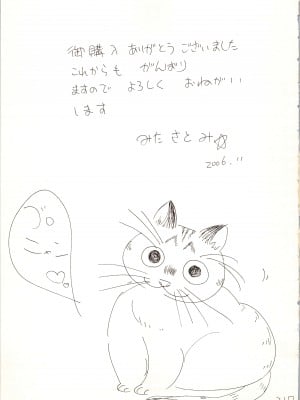 御購入 ありがとう ございました
これからも がんばり
ますので よろしく おねがい
します
みた さと み
2006.11